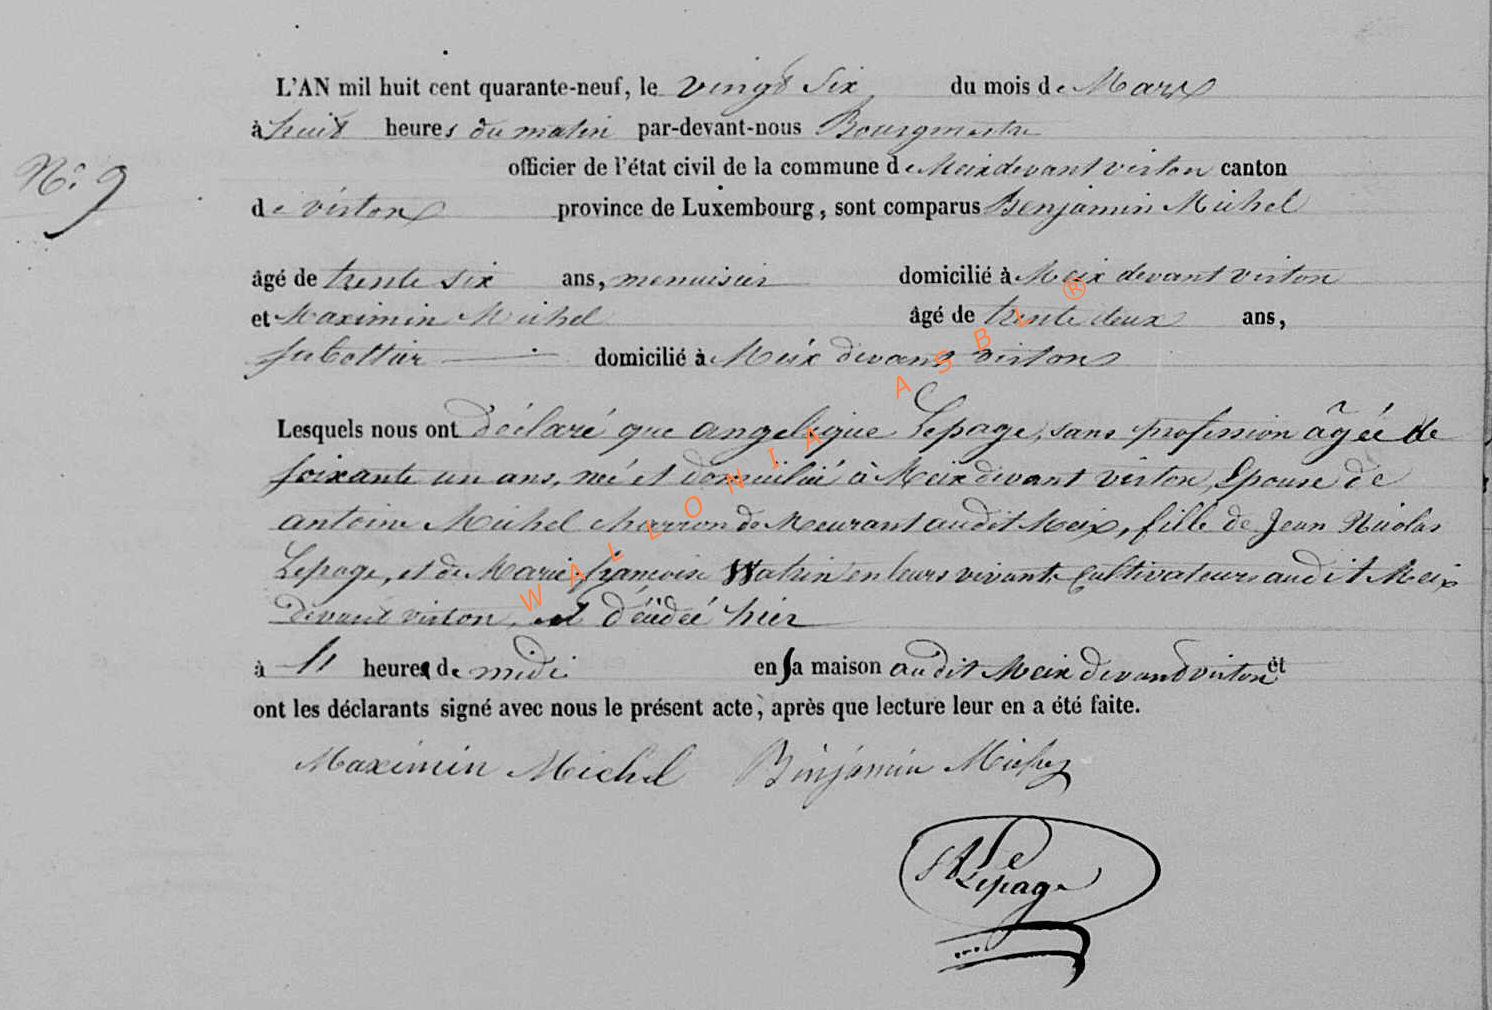 L'AN mil huit cent quarante-neuf, le vingt Six du mois de Mars
à huit heures du matin par-devant-nous Bourgmestre
officier de l'état civil de la commune de Meix devant virton canton
N.° 9
de virton province de Luxembourg, sont comparus Benjamin Michel
âgé de trente six ans, menuisier domicilié à Meix devant virton
et Maximin Michel âgé de trente deux ans,
domicilié à Meix devant virton
Lesquels nous ont déclaré que angelique Lepage, sans profession âgée de
soixante un ans, né et domicilié à Meix devant virton, Epouse de
antoine Michel charron de Meurant audit Meix, fille de Jean Nicolas
Lepage, et de Marie françoise Watrin en leurs vivant cultivateurs audit Meix
devant virton, est décédeé hier
à 11 heures de midi en sa maison audit Meix devant virton et
ont les déclarants signé avec nous le présent acte, après que lecture leur en a été faite.
Maximin Michel Binjamin Michel
Lepage
WALLONIA ASBL ®